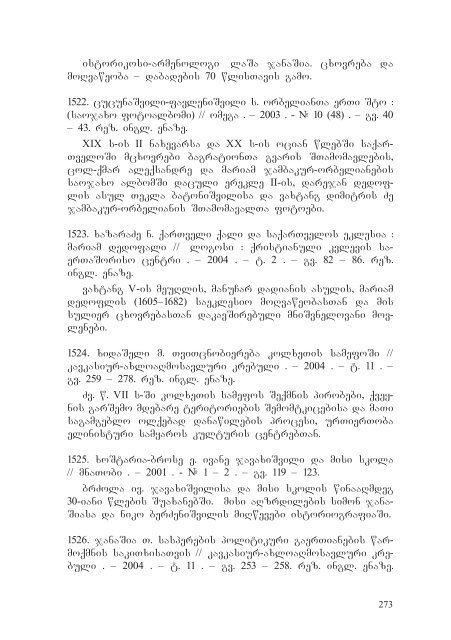 ისტორიკოსი-არმენოლოგი ლაშა ჯანაშია. ცხოვრება და
მოღვაწეობა – დაბადების 70 წლისთავის გამო.
1522. ცუცუნაშვილი-ფავლენიშვილი ს. ორბელიანთა ერთი შტო :
(საოჯახო ფოტოალბომი) // ომეგა . – 2003 . - № 10 (48) . – გვ. 40
– 43. რეზ. ინგლ. ენაზე.
XIX ს-ის II ნახევარსა და XX ს-ის ოციან წლებში საქარ-
თველოში მცხოვრები ბაგრატიონთა გვარის შთამომავლების,
ცოლ-ქმარ ალექსანდრე და მარიამ ჯამბაკურ-ორბელიანების
საოჯახო ალბომში დაცული ერეკლე II-ის, დარეჯან დედოფ-
ლის ასულ თეკლა ბატონიშვილისა და ვახტანგ დიმიტრის ძე
ჯამბაკურ-ორბელიანის შთამომავალთა ფოტოები.
1523. ხაზარაძე ნ. ქართველი ქალი და საქართველოს ეკლესია :
მარიამ დედოფალი // ლოგოსი : ქრისტიანული კვლევის სა-
ერთაშორისო ცენტრი . – 2004 . – ტ. 2 . – გვ. 82 – 86. რეზ.
ინგლ. ენაზე.
ვახტანგ V-ის მეუღლის, მანუჩარ დადიანის ასულის, მარიამ
დედოფლის (1605–1682) საეკლესიო მოღვაწეობასთან და მის
სულიერ ცხოვრებასთან დაკავშირებული მნიშვნელოვანი მოვ-
ლენები.
1524. ხიდაშელი მ. თვითცნობიერება კოლხეთის სამეფოში //
კავკასიურ-ახლოაღმოსავლური კრებული . – 2004 . – ტ. 11 . –
გვ. 259 – 278. რეზ. ინგლ. ენაზე.
ძვ. წ. VII ს-ში კოლხეთის სამეფოს შექმნის პირობები, ქვევ-
ნის გარშემო მდებარე ტერიტორიების შემომტკიცებისა და მათი
საგამგებლო ოლქებად დანაწილების პროცესი, ურთიერთობა
ელინისტური სამყაროს კულტურის ცენტრებთან.
1525. ხოშტარია-ბროსე ე. ივანე ჯავახიშვილი და მისი სკოლა
// მნათობი . – 2001 . - № 1 – 2 . – გვ. 119 – 123.
ბრძოლა ივ. ჯავახიშვილისა და მისი სკოლის წინააღმდეგ
30-იანი წლების შუახანებში. მისი აღზრდილების სიმონ ჯანა-
შიასა და ნიკო ბერძენიშვილის მიღწევები ისტორიოგრაფიაში.
1526. ჯანაშია თ. სასპერების პოლიტიკური გაერთიანების წარ-
მოქმნის საკითხისათვის // კავკასიურ-ახლოაღმოსავლური კრე-
ბული . – 2004 . – ტ. 11 . – გვ. 253 – 258. რეზ. ინგლ. ენაზე.
273